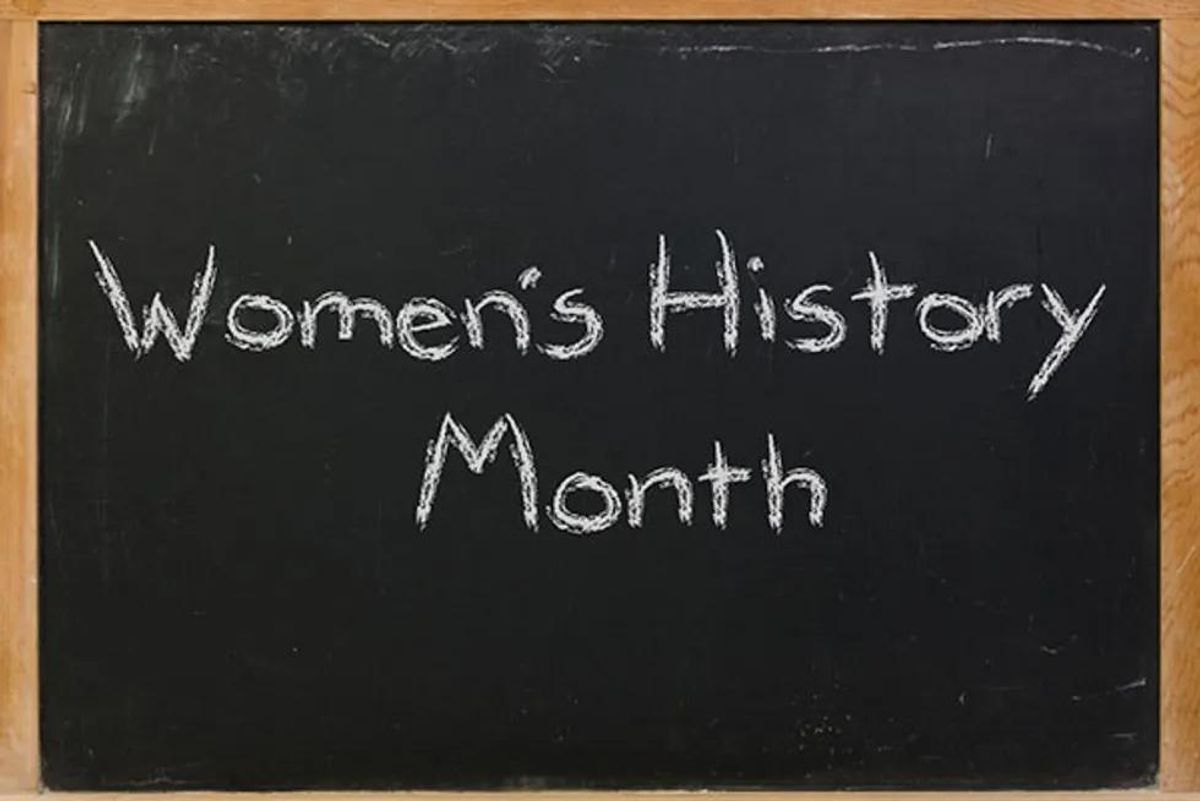 Women's History
Month